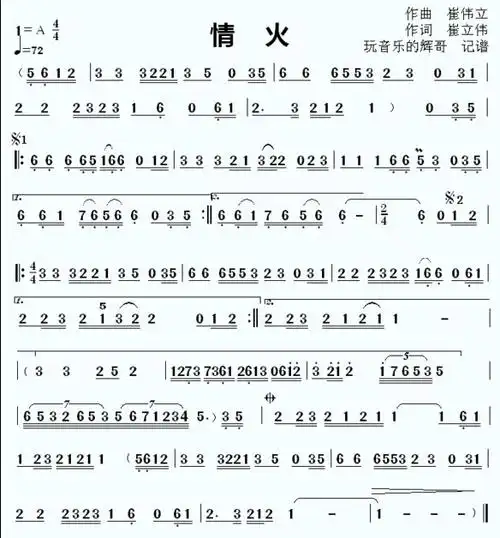 作曲 崔伟立
1=A 4/4
情 火
作词 崔立伟
♩=72
玩音乐的辉哥 记谱
(5 6 1 2 | 3 3 3221 3 5 0 35 | 6 6 6553 2 3 0 31 |
2 2 2323 1 6 0 61 | 2. 3 212 1 ) 0 35 |
𝄋1
𝄆 6 6 6 65 166 0 12 | 3 3 3 21 322 0 23 | 1 1 1 66 53 0 35 |
1. 2.
6 6 1 7656 6 0 35 𝄇 6 61 7 6 56 6 - | 2/4 6 0 12 |
𝄋2
𝄆 4/4 3 3 3221 3 5 0 35 | 6 6 6553 2 3 0 31 | 2 2 2323 166 0 61 |
1. 5 2.
2 23 2 1 3 2 2 0 1 2 𝄇 2 23 2 121 1 - |
5
( 3 3 2 5 2 | 1273 7361 2613 0612 | 3 212 176535 |
7 7
6532653 5671234 5. ) 35 | 2 23 2 121 1 | 1 1 61 |
1 232121 1 (5612 | 3 3 3221 3 5 0 35 | 6 6 6553 2 3 0 31 |
2 2 2323 1 6 0 61 | 2. 3 212 1 - | 1 - - - )‖